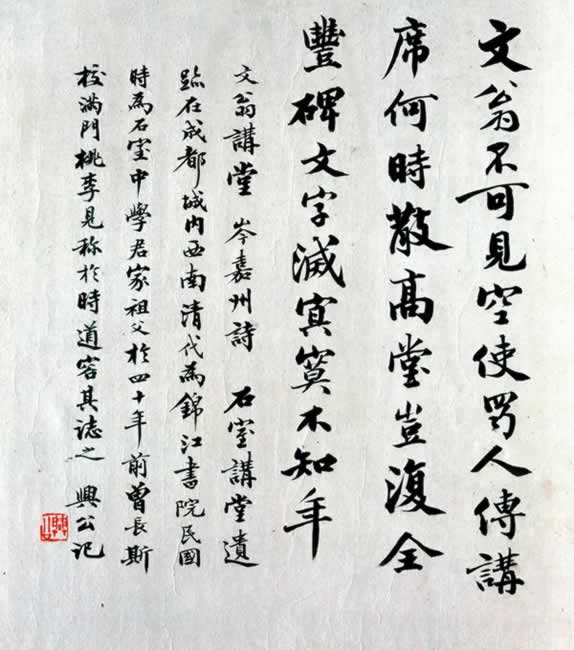 文翁不可見空使蜀人傳講
席何時散高堂豈復全
豐碑文字滅冥寞不知年
文翁講堂 岑嘉州詩 石室講堂遺
跡在成都城內西南清代為錦江書院民國
時為石室中學君家祖父於四十年前曾長斯
校滿門桃李見稱於時道容其誌之 興公記